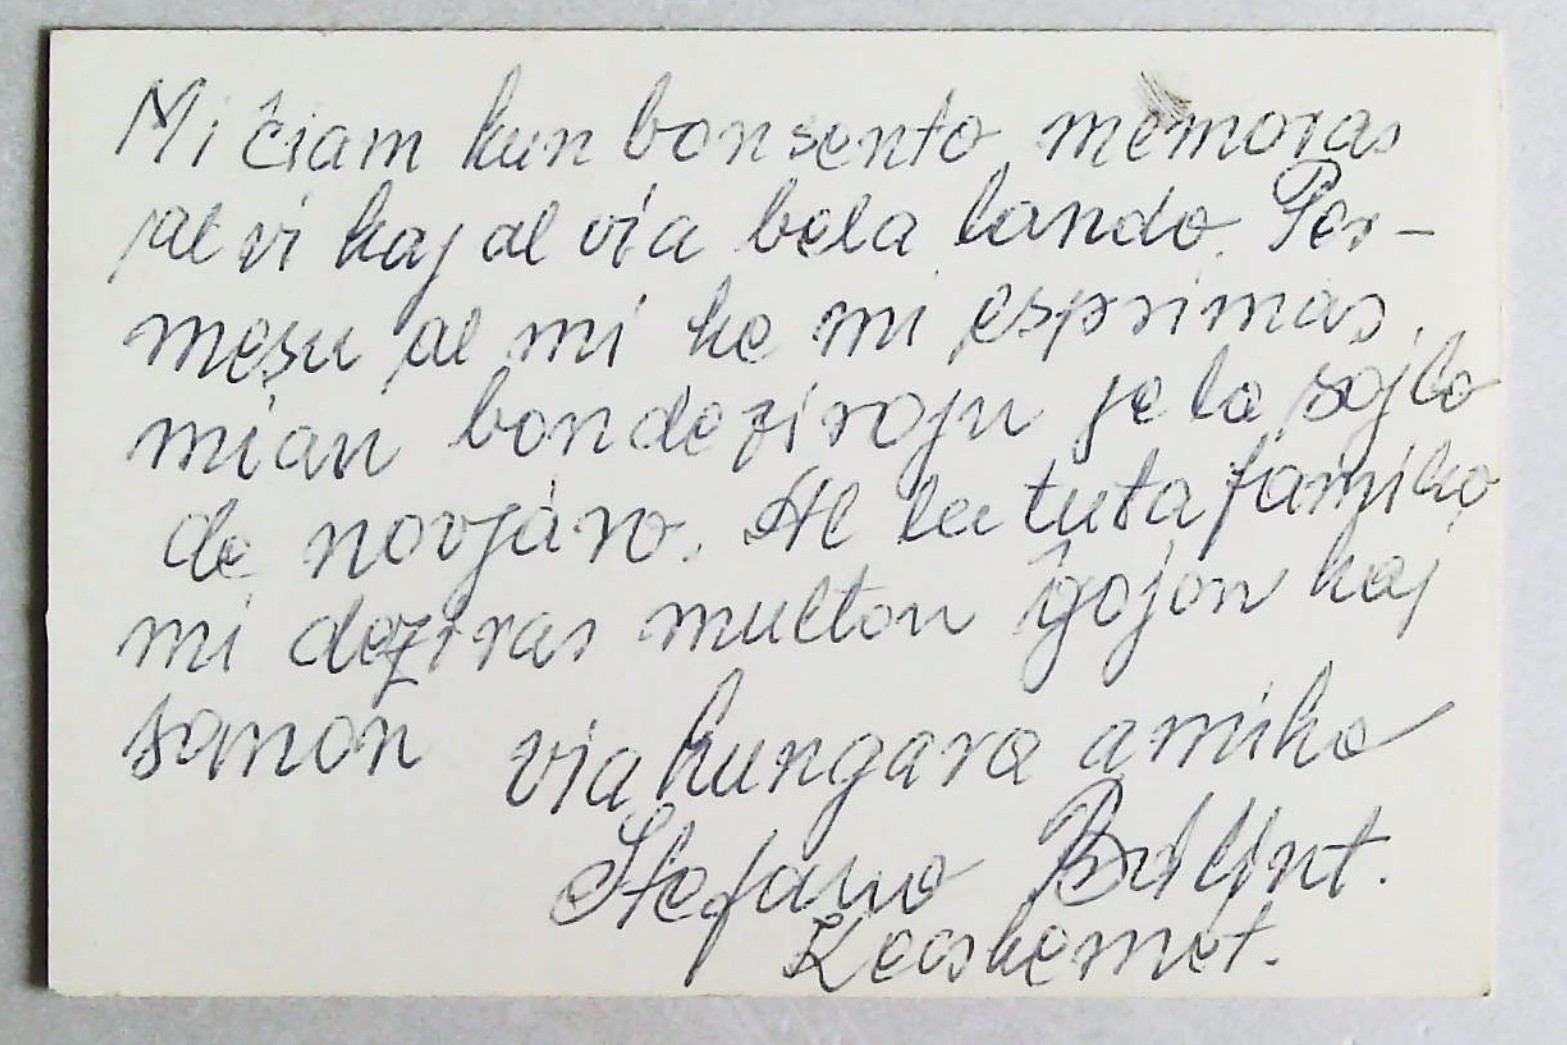 Mi ĉiam kun bonsento memoras
al vi kaj al via bela lando. Per-
mesu al mi ke mi esprimas
mian bondezirojn je la sojlo
de novjaro. Al la tuta familio
mi deziras multon ĝojon kaj
sanon via hungara amiko
Stefano Bálint.
Kecskemet.